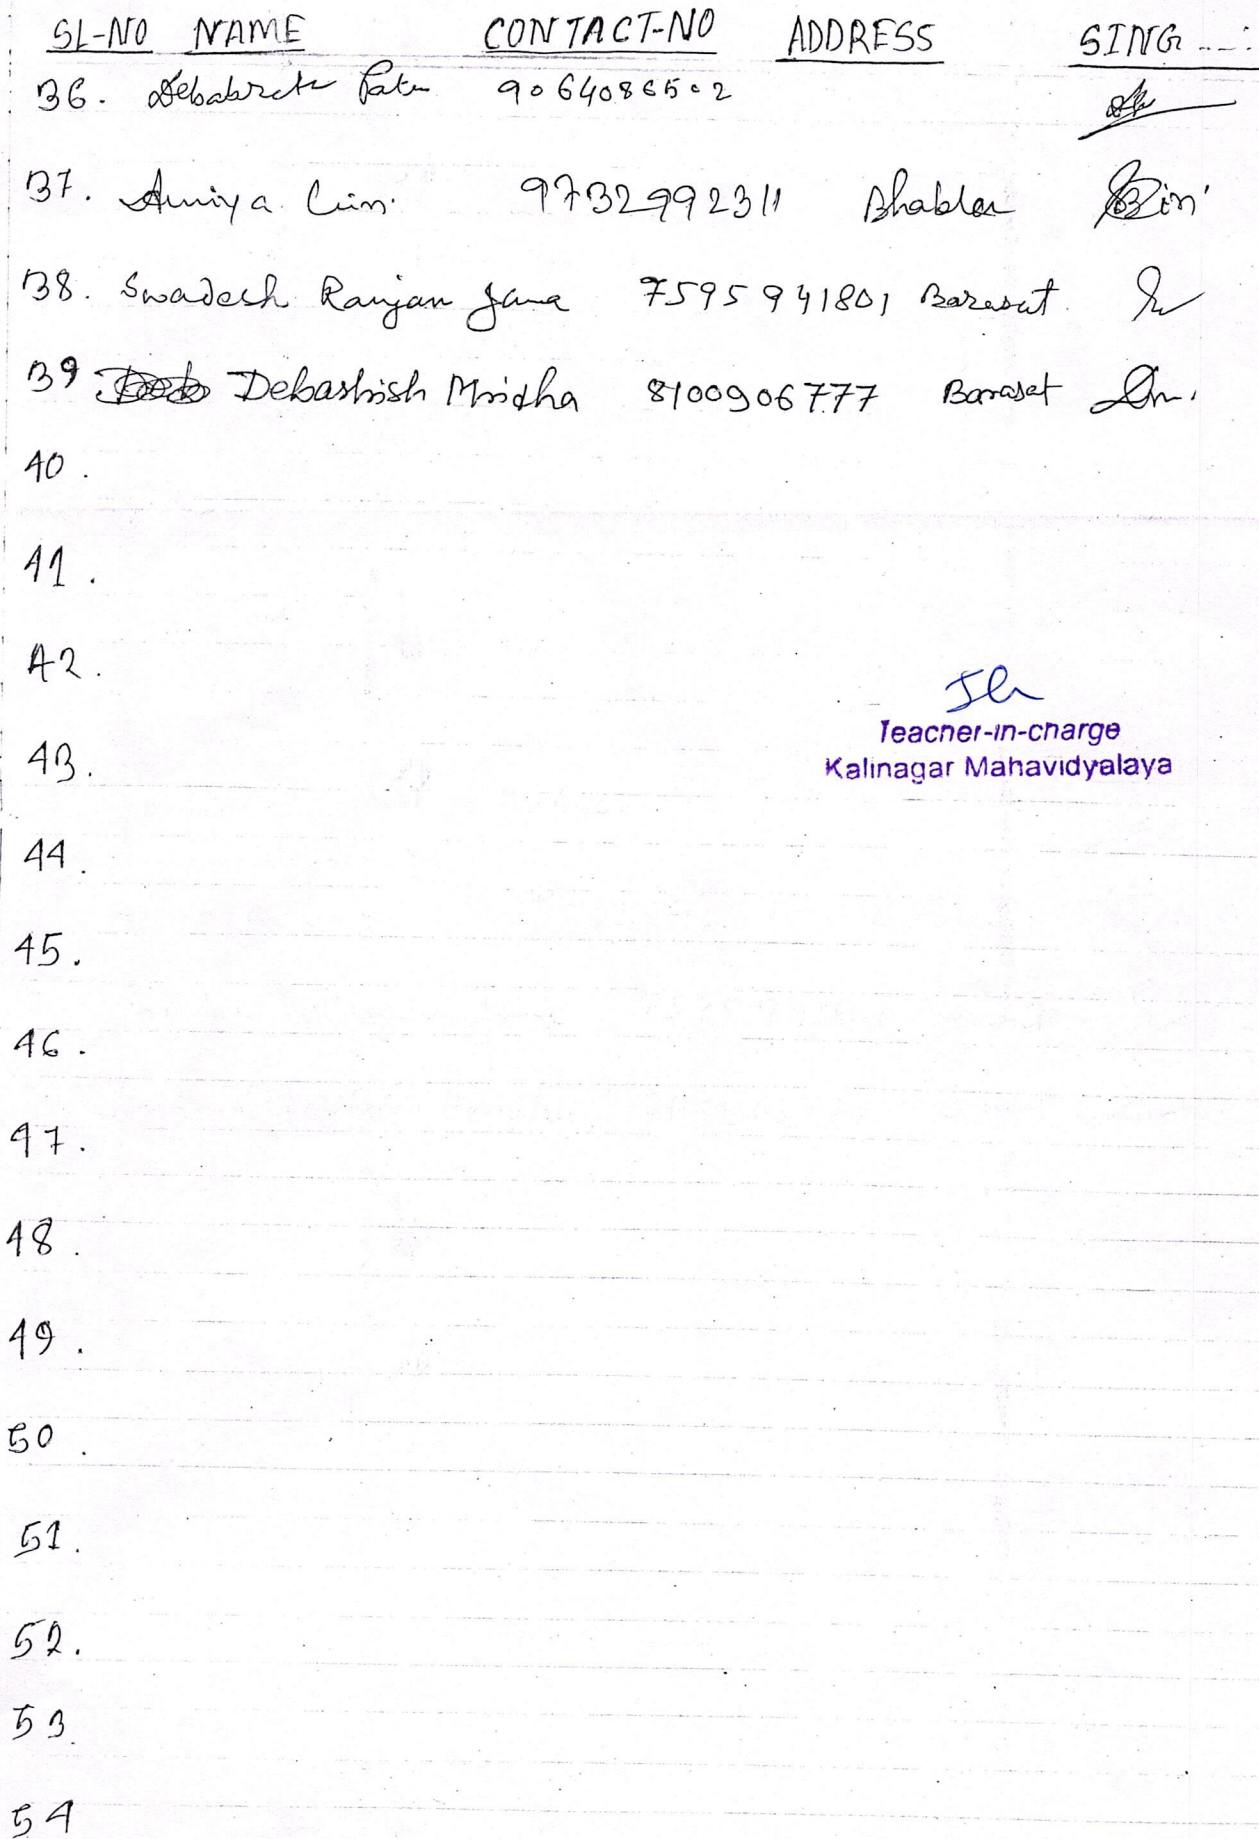 SL-NO NAME CONTACT-NO ADDRESS SING
36. Debabrata 9064086502
37. Amiya 9732992311
38. Swadesh Ranjan Jana 7595941801 Barasat
39 Debashish Mridha 8100906777 Barasat
40.
41.
42.
Teacher-in-charge
43.
Kalinagar Mahavidyalaya
44.
45.
46.
47.
48.
49.
50.
51.
52.
53.
54